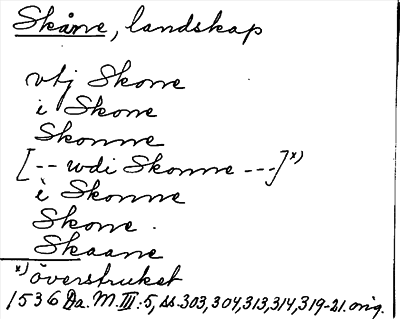 Skåne, landskap
vtj Skone
i Skone
Skonne
[-- wdi Skonne ---]x)
i Skonne
Skone.
Skaane
x) överstruket
1536 Da. M. III:5, ss. 303, 304, 313, 314, 319-21. orig.